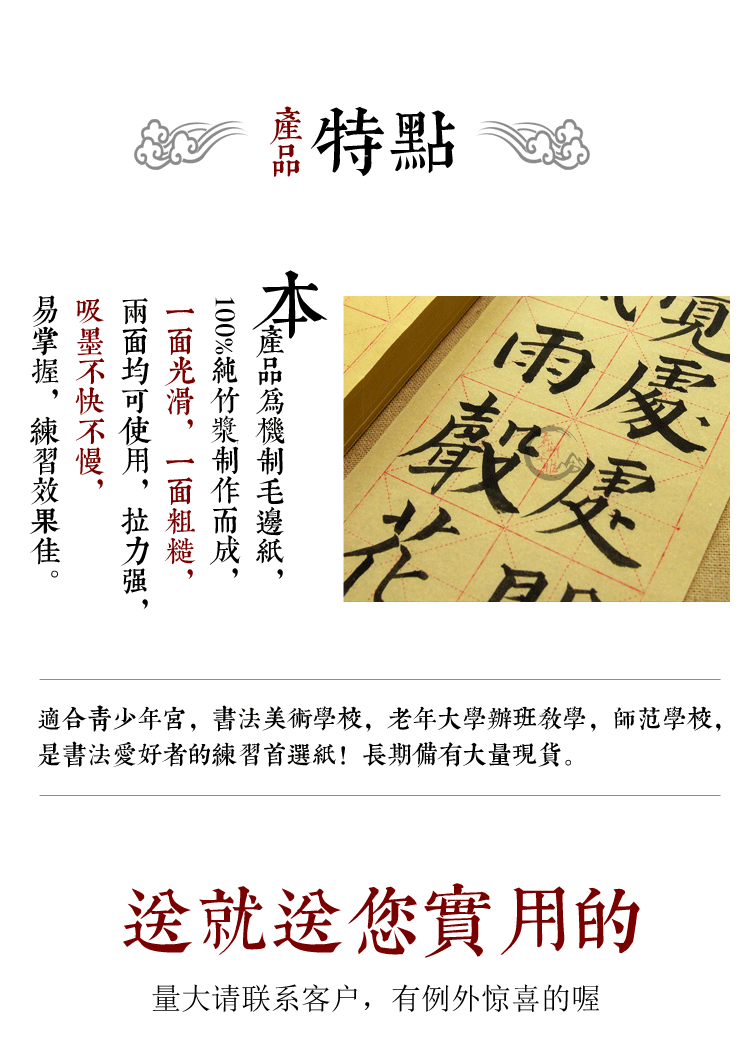 產品特點
本產品爲機制毛邊紙，
100%純竹漿制作而成，
一面光滑，一面粗糙，
兩面均可使用，拉力强，
吸墨不快不慢，
易掌握，練習效果佳。
覓處處
雨
聲
花
適合青少年宮，書法美術學校，老年大學辦班教學，師范學校，
是書法愛好者的練習首選紙！長期備有大量現貨。
送就送您實用的
量大请联系客户，有例外惊喜的喔